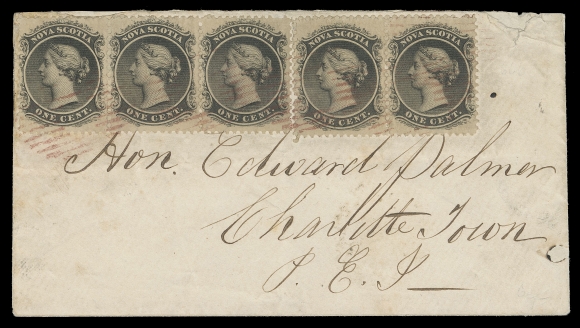 NOVA SCOTIA NOVA SCOTIA NOVA SCOTIA NOVA SCOTIA NOVA SCOTIA
ONE CENT. ONE CENT. ONE CENT. ONE CENT. ONE CENT.
Hon. Edward Palmer
Charlotte Town
P. E. I